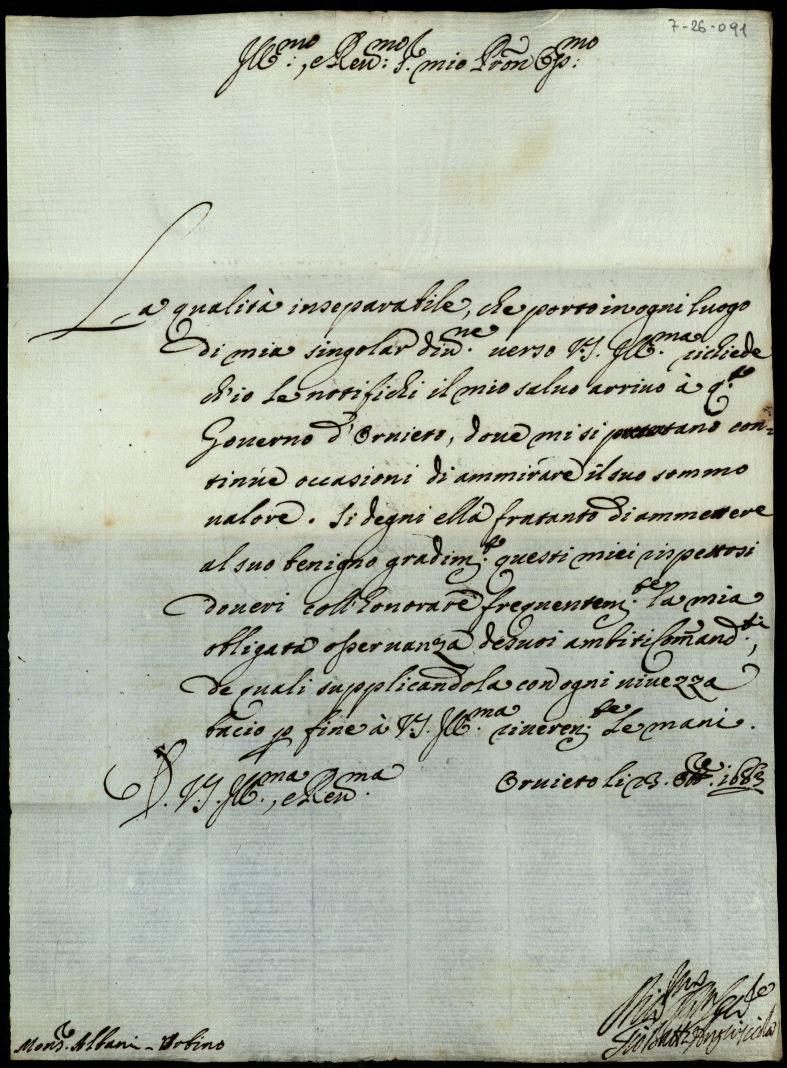 7-26-091
Ill:mo, e Reu:mo S.r mio Pron Oss:mo
La qualità inseparabile, che porto in ogni luogo
di mia singolar diu.ne uerso V.S. Ill.ma richiede
ch'io le notifichi il mio saluo arriuo à q.to
Gouerno d'Oruieto, doue mi si presentano con=
tinue occasioni di ammirare il suo sommo
ualore. Si degni ella fratanto di ammettere
al suo benigno gradim.to questi miei rispettosi
doueri coll'honorare frequentem.te la mia
obligata osseruanza de suoi ambiti Comand.ti,
de quali supplicandola con ogni uiuezza
bacio p fine à V.S. Ill.ma riueren.te le mani.
D. V.S. Ill.ma, e Reu.ma
Oruieto li 23. Ott.re 1683
Mons.r Albani - Urbino